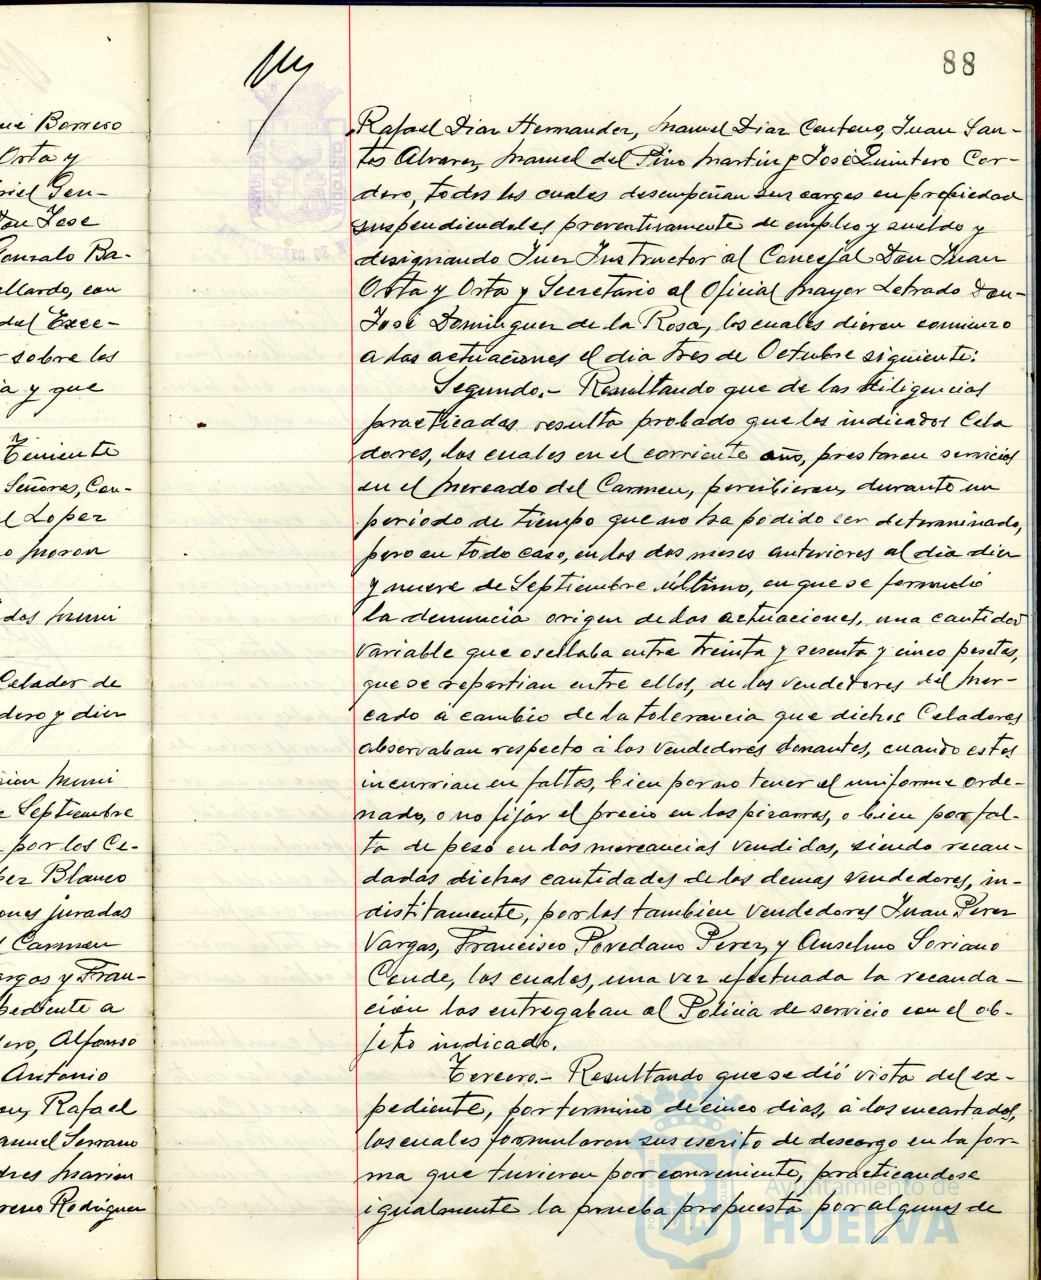 88
Rafael Diaz Hernandez, Manuel Diaz Centeno, Juan San-
tos Alvarez, Manuel del Pino Martin y José Quintero Cor-
dero, todos los cuales desempeñan sus cargos en propiedad
suspendiendoles preventivamente de empleo y sueldo y
designando Juez Instructor al Concejal Don Juan
Orta y Orta y Secretario al Oficial Mayor Letrado Don
José Dominguez de la Rosa, los cuales dieron comienzo
a las actuaciones el dia tres de Octubre siguiente:
Segundo.- Resultando que de las diligencias
practicadas resulta probado que los indicados Cela
dores, los cuales en el corriente año, prestaron servicios
en el Mercado del Carmen, percibieron, durante un
periodo de tiempo que no ha podido ser determinado,
pero en todo caso, en los dos meses anteriores al dia diez
y nueve de Septiembre último, en que se formuló
la denuncia origen de las actuaciones, una cantidad
variable que oscilaba entre treinta y sesenta y cinco pesetas,
que se repartian entre ellos, de los vendedores del Mer-
cado á cambio de la tolerancia que dichos Celadores
observaban respecto á los vendedores donantes, cuando estos
incurrian en faltas, bien por no tener el uniforme orde-
nado, o no fijar el precio en las pizarras, o bien por fal-
ta de peso en las mercancias vendidas, siendo recau-
dadas dichas cantidades de los demas vendedores, in-
distitamente, por los tambien vendedores Juan Perez
Vargas, Francisco Povedano Perez, y Anselmo Soriano
Conde, los cuales, una vez efectuada la recauda-
ción las entregaban al Policia de servicio con el ob-
jeto indicado.
Tercero.- Resultando que se dió vista del ex-
pediente, por termino de cinco dias, á los encartados,
los cuales formularon sus escrito de descargo en la for-
ma que tuvieron por conveniente, practicandose
igualmente la prueba propuesta por algunos de
Borrero
Orta y
riel Gon-
Don Jose
Gonzalo Ba-
llardo, con
del Exce-
sobre los
ia y que
Teniente
Señores, Con-
l Lopez
o Moron
dos Muni
Celador de
dero y diez
Muni
e Septiembre
por los Ce-
pez Blanco
ones juradas
Carmen
argas y Fran-
pediente a
ero, Alfonso
Antonio
Rafael
anuel Serrano
dres Marin
reno Rodriguez
Ayuntamiento de
HUELVA